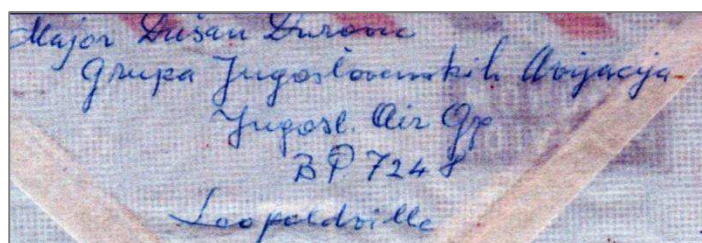 Major Dušan Đurović
Grupa Jugoslovenskih Avijacija
Jugosl. Air Gp
BP 7248
Leopoldville